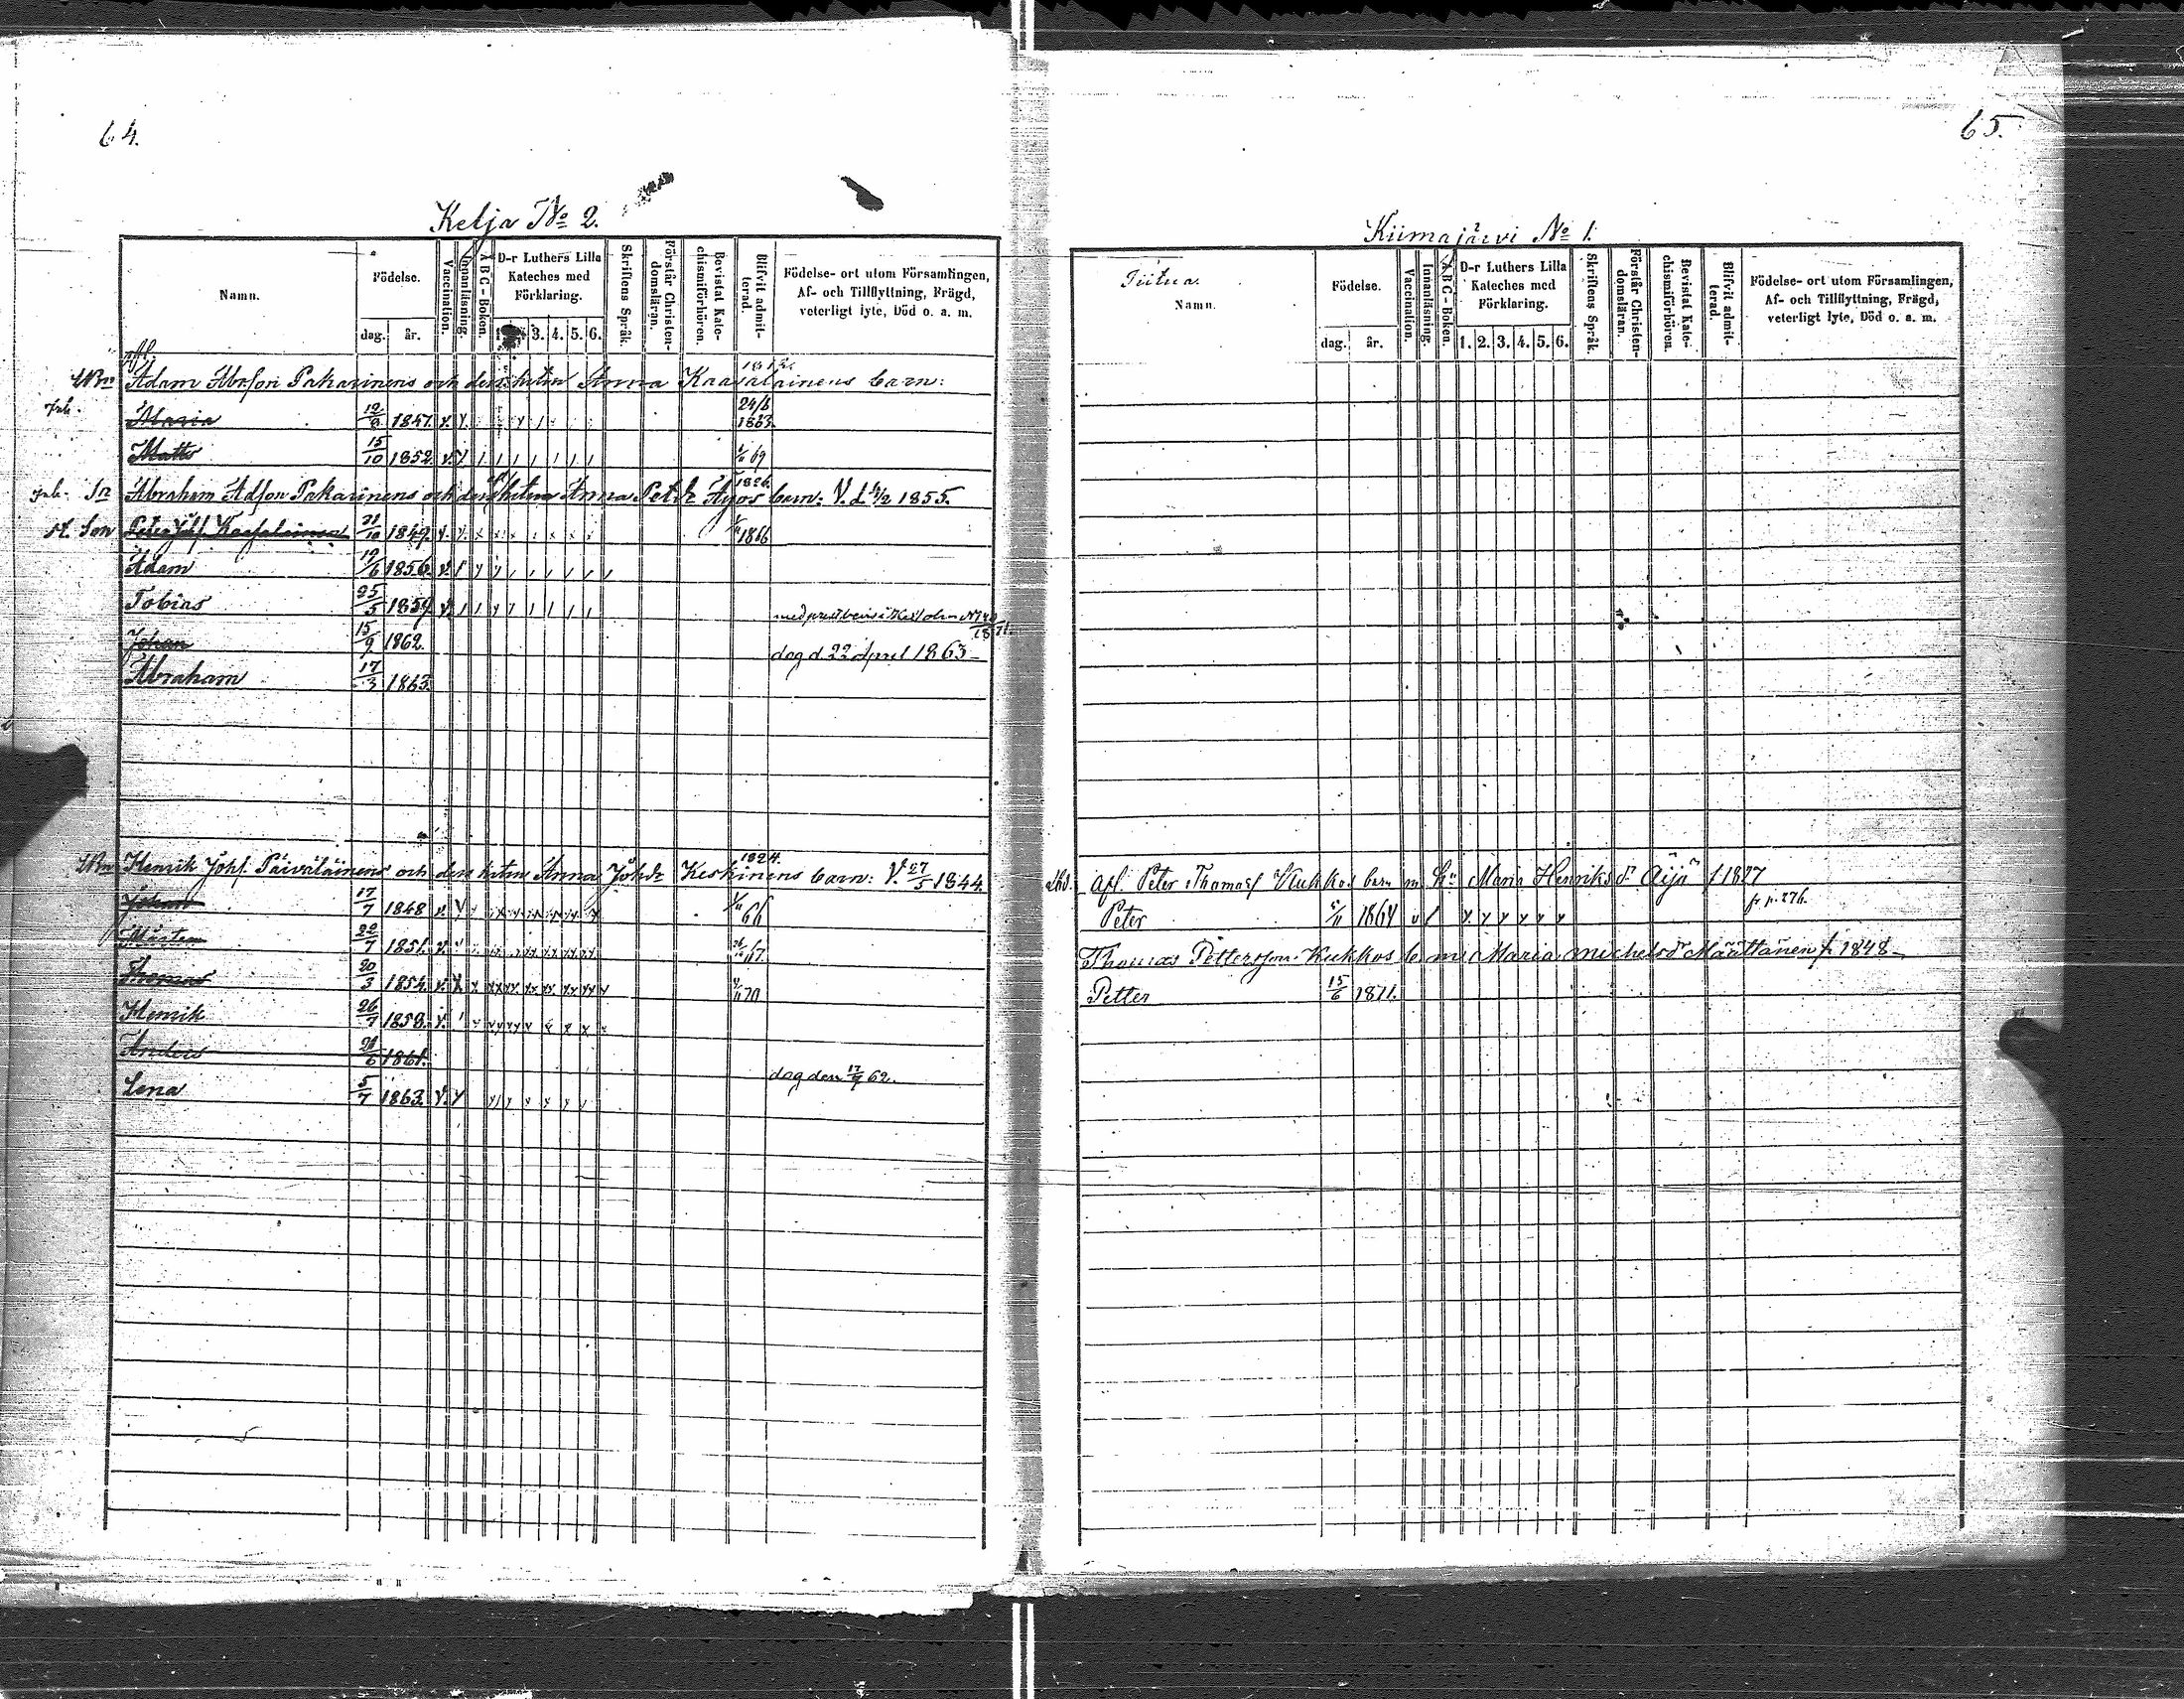 64.
Kelja No 2.
Namn.
Födelse.
dag.
år.
Vaccination.
Innanläsning.
A B C - Boken.
D-r Luthers Lilla Kateches med Förklaring.
3. 4. 5. 6.
Skriftens Språk.
Förstår Christen-domsläran.
Bevistat Kate-chismiförhören.
Blifvit admit-terad.
Födelse- ort utom Församlingen, Af- och Tillflyttning, Frägd, veterligt lyte, Död o. a. m.
Afl.
Adam Abrson Pakarinens och dess hustru Anna Kaasalainens barn:
Maria 12/9 1847. 24/6 1863.
Matts 15/10 1852. 69
Sn Abraham Adson Pakarinens och dess hustru Anna Petdr Äyjös barn: V. d. 1/2 1855. 1826
Son Peter Joh. Kaasalainen 21/10 1849. 1866
Adam 19/6 1856.
Tobias 25/5 1859.
Johan 15/9 1862. dog d. 22 April 1863
Abraham 17/3 1863.
Henrik Johs. Päiväläinens och dess hustru Anna Johdr Keskinens barn: V. 27/5 1844 1824.
Johan 17/7 1848 66
Mårten 22/7 1851. 67
Thomas 20/3 1854. 70
Henrik 26/7 1858.
Anders 21/6 1861. dog den 17/9 62.
Lena 5/7 1863.
65.
Kiimajärvi No 1.
Tiitua.
Namn.
Födelse.
dag.
år.
Vaccination.
Innanläsning.
A B C - Boken.
D-r Luthers Lilla Kateches med Förklaring.
1. 2. 3. 4. 5. 6.
Skriftens Språk.
Förstår Christen-domsläran.
Bevistat Kate-chismiförhören.
Blifvit admit-terad.
Födelse- ort utom Församlingen, Af- och Tillflyttning, Frägd, veterligt lyte, Död o. a. m.
Afl. Peter Thomass Kukkos barn m hu Maria Henriksdr Äijä f. 1827
Peter 5/11 1864 fr p. 276.
Thomas Petterson Kukkos b m Maria Michelsdr Määttänen f. 1848
Petter 15/6 1871.